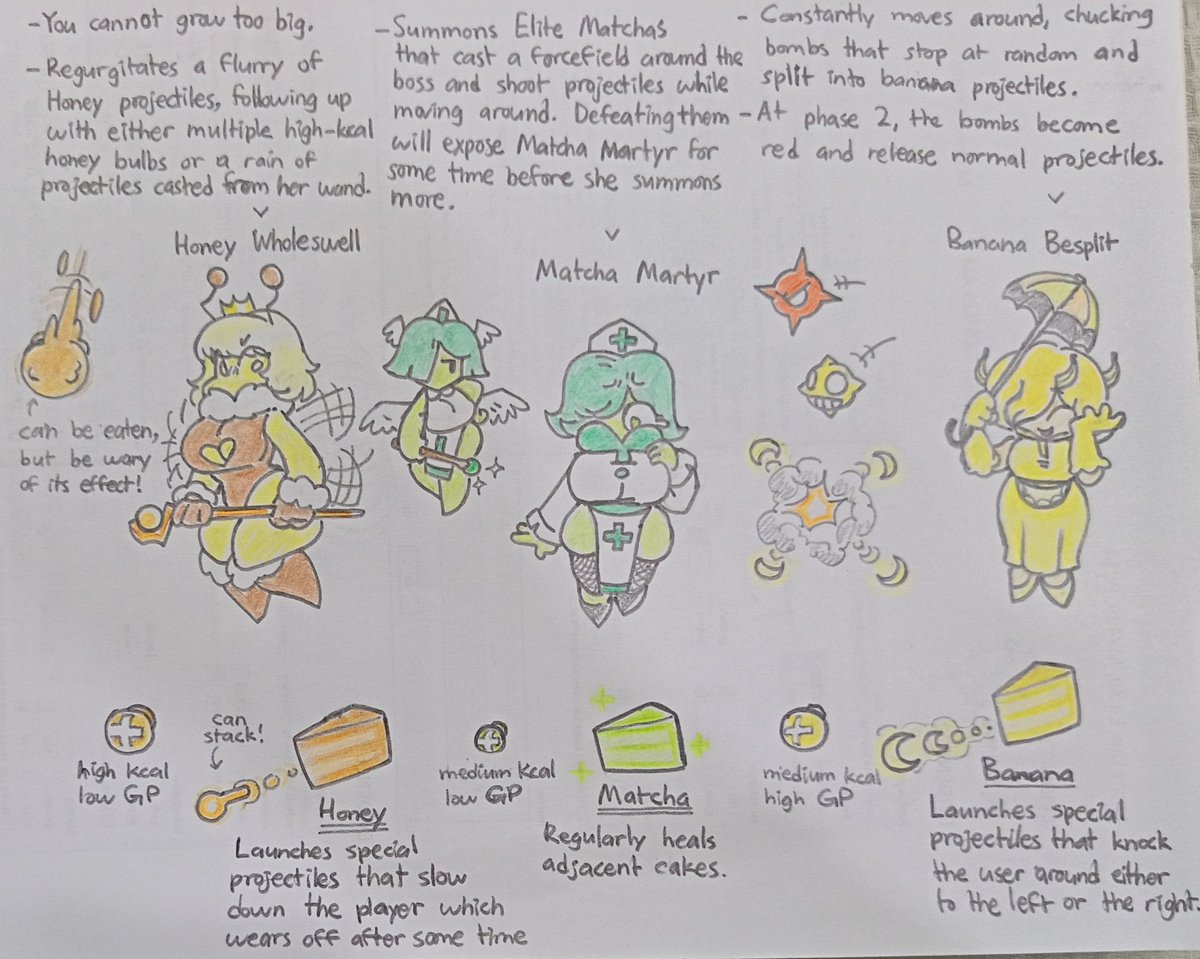 -You cannot grow too big.
-Regurgitates a flurry of
Honey projectiles, following up
with either multiple high-kcal
honey bulbs or a rain of
projectiles casted from her wand.
Honey Wholeswell
can be eaten,
but be wary
of its effect!
-Summons Elite Matchas
that cast a forcefield around the
boss and shoot projectiles while
moving around. Defeating them
will expose Matcha Martyr for
some time before she summons
more.
Matcha Martyr
- Constantly moves around, chucking
bombs that stop at random and
split into banana projectiles.
-At phase 2, the bombs become
red and release normal projectiles.
Banana Besplit
high kcal
low GP
can
stack!
Honey
Launches special
projectiles that slow
down the player which
wears off after some time
medium kcal
low GP
Matcha
Regularly heals
adjacent cakes.
medium kcal
high GP
Banana
Launches special
projectiles that knock
the user around either
to the left or the right.